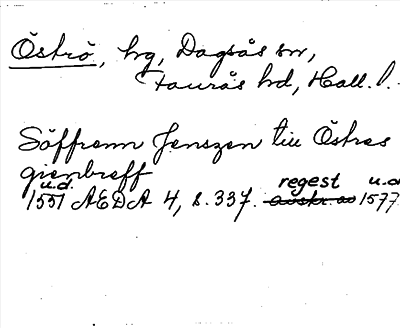 Öströ, hg, Dagsås sn,
Faurås hd, Hall. l.
Söffrenn Jenszen till Östres
gienbreff
u.d. regest u.d.
1551 AEDA 4, s. 337. avskr. av 1577